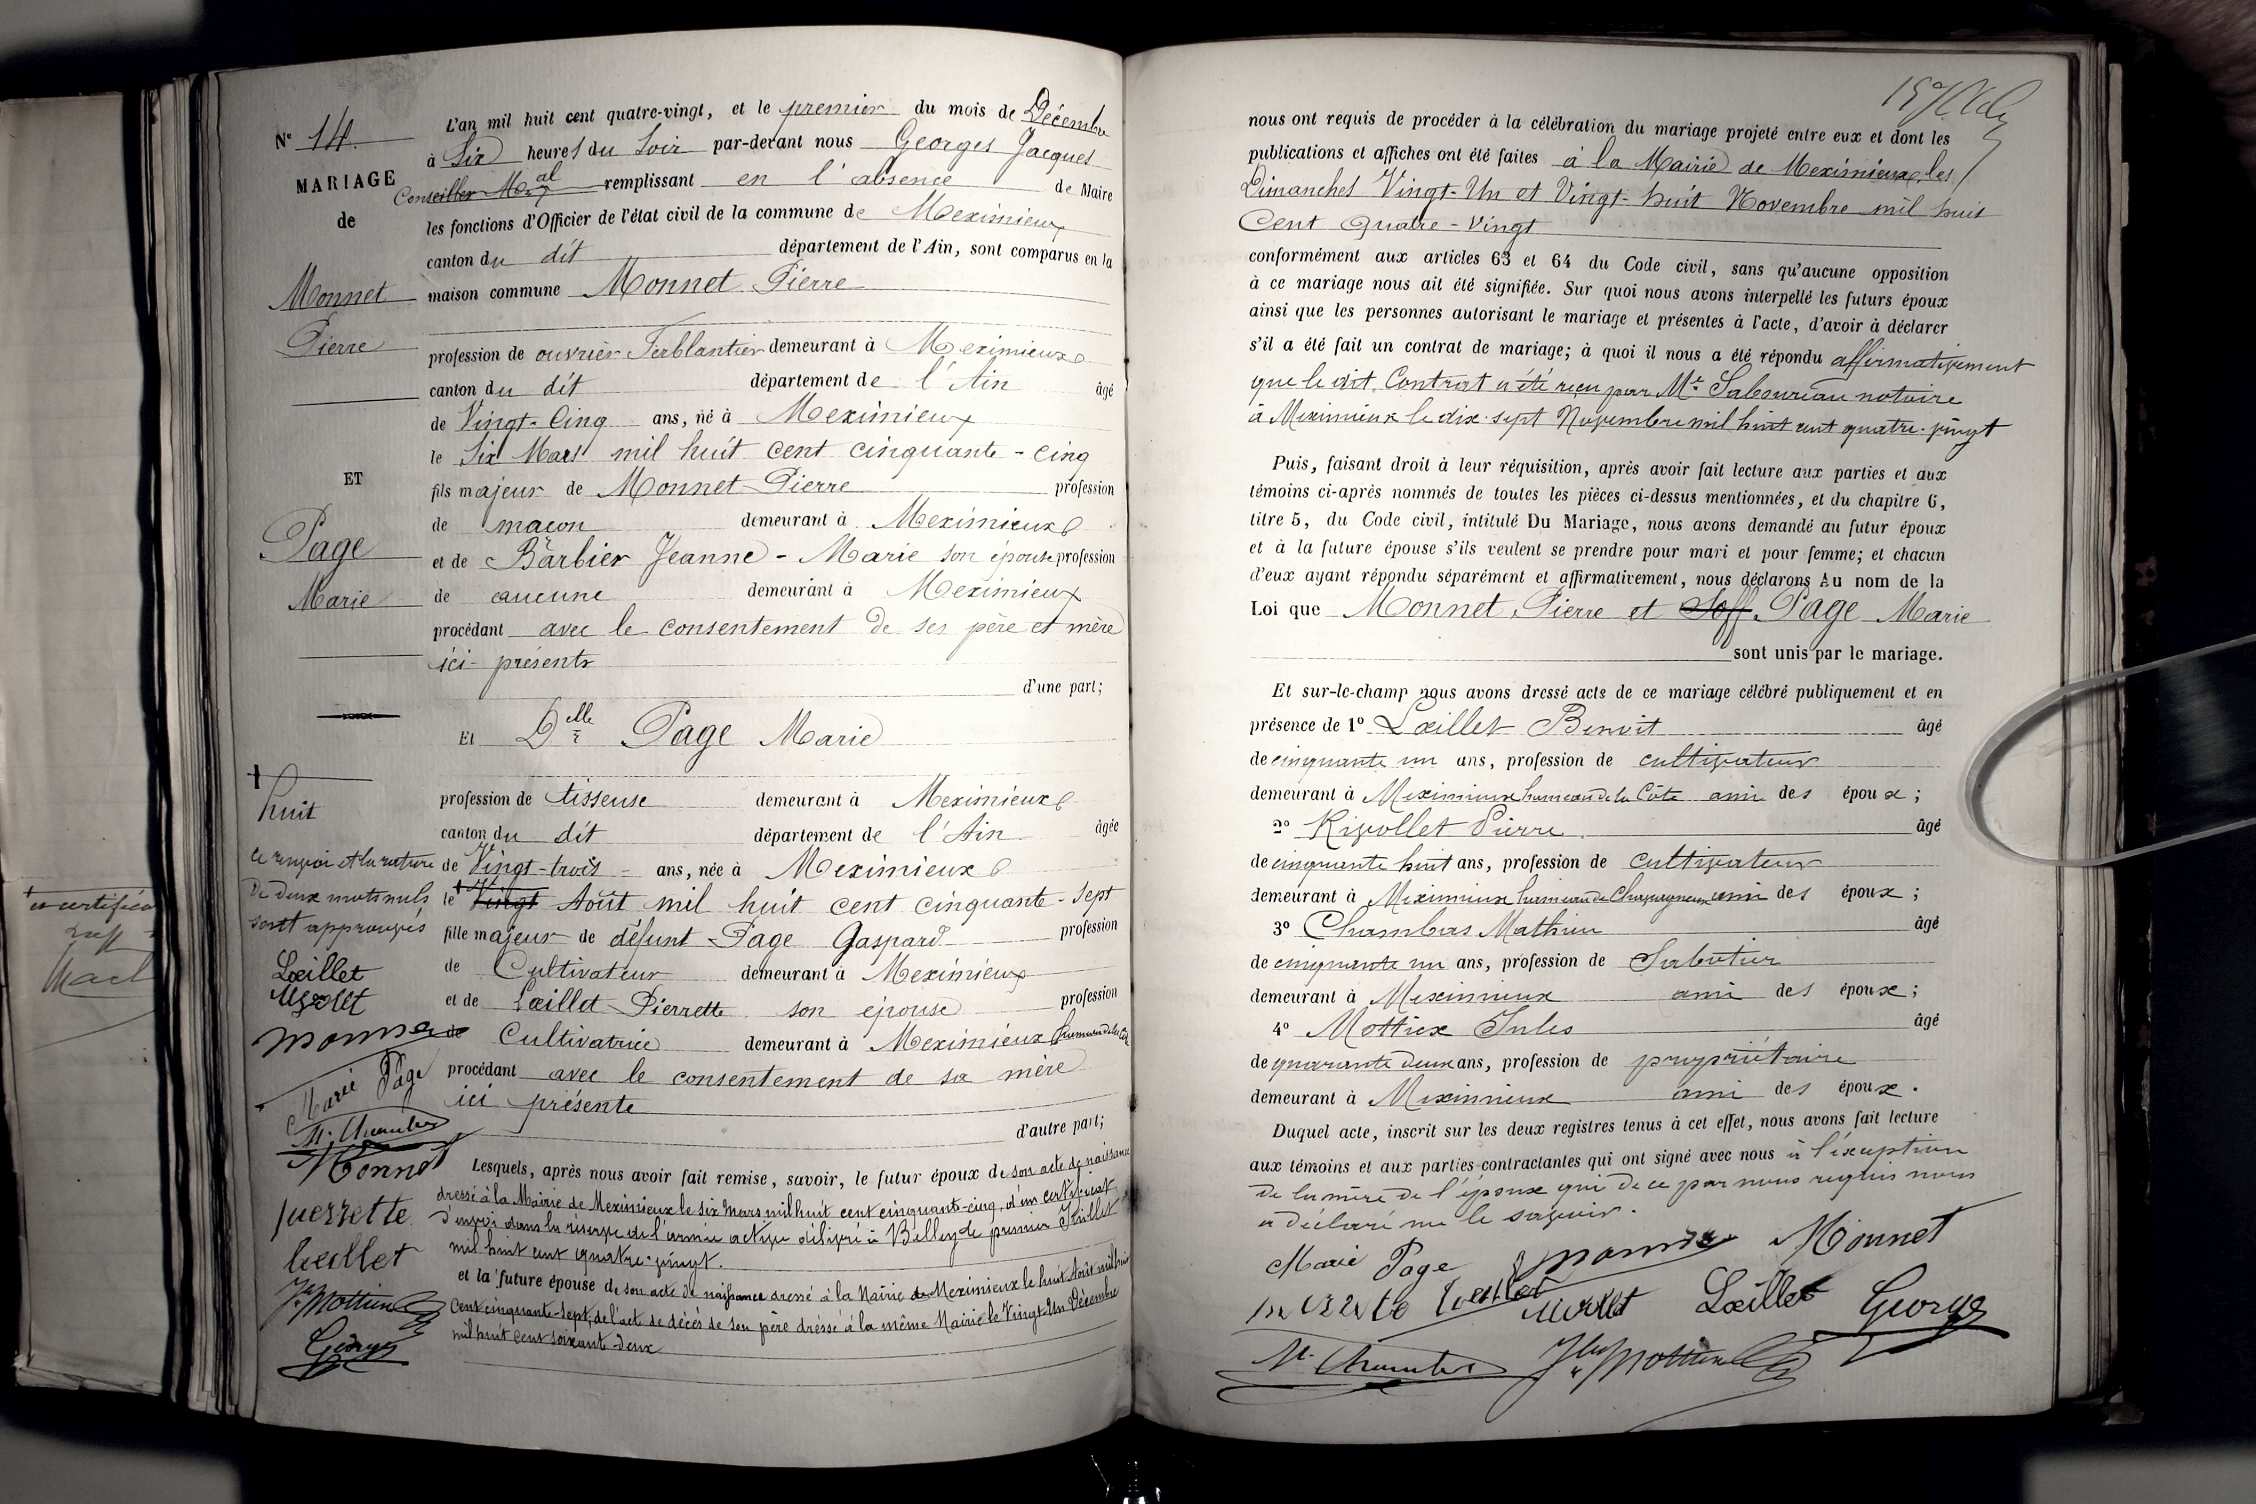 N° 14.
MARIAGE
de
Monnet
Pierre
ET
Page
Marie
L'an mil huit cent quatre-vingt, et le premier du mois de Décembre
à Six heures du Soir par-devant nous Georges Jacques
Conseiller Mal remplissant en l'absence de Maire
les fonctions d'Officier de l'état civil de la commune de Meximieux
canton du dit département de l'Ain, sont comparus en la
maison commune Monnet Pierre
profession de ouvrier Ferblantier demeurant à Meximieux
canton du dit département de l'Ain âgé
de Vingt-Cinq ans, né à Meximieux
le Six Mars mil huit cent cinquante-cinq
fils majeur de Monnet Pierre profession
de maçon demeurant à Meximieux
et de Barbier Jeanne-Marie son épouse profession
de aucune demeurant à Meximieux
procédant avec le consentement de ses père et mère
ici présents
d'une part;
Et Delle Page Marie
profession de tisseuse demeurant à Meximieux
canton du dit département de l'Ain âgée
de Vingt-trois ans, née à Meximieux
le Vingt Août mil huit cent cinquante-sept
fille majeur de défunt Page Gaspard profession
de Cultivateur demeurant à Meximieux
et de Lœillet Pierrette son épouse profession
de Cultivatrice demeurant à Meximieux hameau de la Côte
procédant avec le consentement de sa mère
ici présente
d'autre part;
Lesquels, après nous avoir fait remise, savoir, le futur époux de son acte de naissance
dressé à la Mairie de Meximieux le six Mars mil huit cent cinquante-cinq, d'un certificat
d'envoi dans la réserve de l'armée active délivré à Belley le premier Juillet
mil huit cent quatre-vingt.
et la future épouse de son acte de naissance dressé à la Mairie de Meximieux le huit Août mil huit
Cent cinquante-sept, de l'acte de décès de son père dressé à la même Mairie le Vingt-Un Décembre
mil huit cent soixante-deux
huit
ce renvoi et la rature
de deux mots nuls
sont approuvés
Lœillet
Marie Page
M. Chambas
Monnet
pierrette
lœillet
Jles Mottiex
Georges
nous ont requis de procéder à la célébration du mariage projeté entre eux et dont les
publications et affiches ont été faites à la Mairie de Meximieux, les
Dimanches Vingt-Un et Vingt-huit Novembre mil huit
Cent Quatre-Vingt
conformément aux articles 63 et 64 du Code civil, sans qu'aucune opposition
à ce mariage nous ait été signifiée. Sur quoi nous avons interpellé les futurs époux
ainsi que les personnes autorisant le mariage et présentes à l'acte, d'avoir à déclarer
s'il a été fait un contrat de mariage; à quoi il nous a été répondu affirmativement
que le dit Contrat a été reçu par Me Saboureau notaire
à Meximieux le dix-sept Novembre mil huit cent quatre-vingt
Puis, faisant droit à leur réquisition, après avoir fait lecture aux parties et aux
témoins ci-après nommés de toutes les pièces ci-dessus mentionnées, et du chapitre 6,
titre 5, du Code civil, intitulé Du Mariage, nous avons demandé au futur époux
et à la future épouse s'ils veulent se prendre pour mari et pour femme; et chacun
d'eux ayant répondu séparément et affirmativement, nous déclarons Au nom de la
Loi que Monnet Pierre et Page Marie
sont unis par le mariage.
Et sur-le-champ nous avons dressé acte de ce mariage célébré publiquement et en
présence de 1° Lœillet Benoit âgé
de cinquante un ans, profession de cultivateur
demeurant à Meximieux hameau de la Côte ami des époux;
2° Rivollet Pierre âgé
de cinquante huit ans, profession de cultivateur
demeurant à Meximieux hameau de ami des époux;
3° Chambas Mathieu âgé
de cinquante un ans, profession de Sabotier
demeurant à Meximieux ami des époux;
4° Mottiex Jules âgé
de quarante deux ans, profession de propriétaire
demeurant à Meximieux ami des époux.
Duquel acte, inscrit sur les deux registres tenus à cet effet, nous avons fait lecture
aux témoins et aux parties contractantes qui ont signé avec nous à l'exception
de la mère de l'époux qui de ce par nous requis nous
a déclaré ne le savoir.
Marie Page Monnet
pierrette lœillet Lœillet Georges
M. Chambas Jles Mottiex